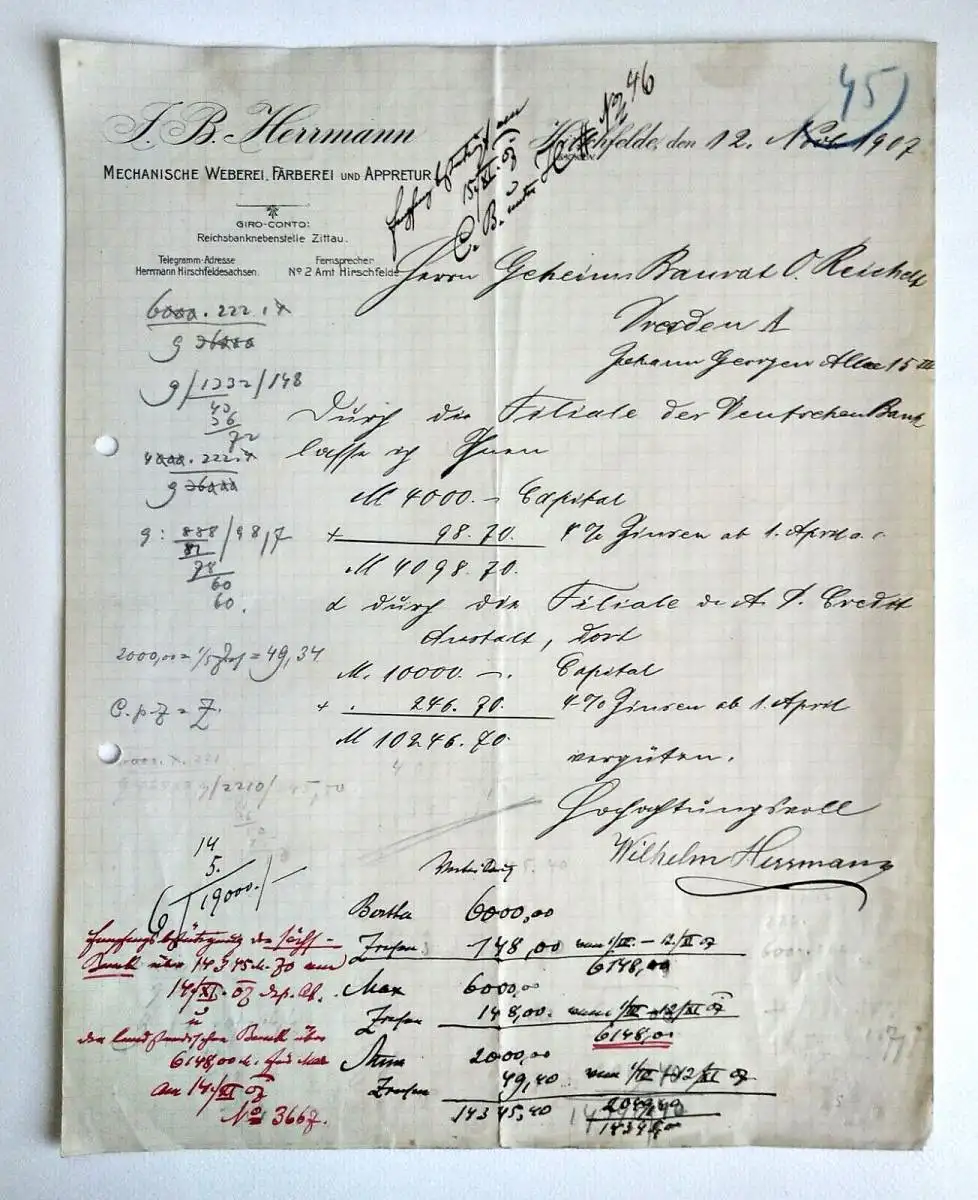 45
No 46
J. B. Herrmann
Hirschfelde, den 12. Nov. 1907
MECHANISCHE WEBEREI, FÄRBEREI UND APPRETUR
15/XI. 07
C. B. unter
GIRO-CONTO:
Reichsbanknebenstelle Zittau.
Telegramm-Adresse
Herrmann Hirschfeldesachsen.
Fernsprecher
No 2 Amt Hirschfelde
Herrn Geheimen Baurat O. Reichelt
Dresden A
Johann Georgen Allee 15 III
Durch die Filiale der Deutschen Bank
lasse ich Ihnen
M 4000.- Capital
+ 98.70. 4% Zinsen ab 1. April a. c.
M 4098.70.
& durch die Filiale d. A. D. Credit
Anstalt, dort
M. 10000.-. Capital
+ . 246.70. 4% Zinsen ab 1 April
M 10246.70.
vergüten.
Hochachtungsvoll
Wilhelm Herrmann
6000.222.4
9 36000
9/1332/148
43
36
72
4000.222.4
9 36000
9: 888/98,7
81
78
60
60.
2000,00 = 49,34
C. p. Z = Z.
14
5.
6/19000.
Bertha 6000,00
Zinsen 148,00 vom 1/IV. - 12./XI 07
6148,00
Max 6000,00
Zinsen 148,00. vom 1/IV - 12/XI 07
6148,00
2000,00
Zinsen 49,40 vom 1/IV 12/XI 07
2049,40
14345,40
Empfangsbestätigung der Sächs-
Bank über 14345 M. 70 am
14/XI. 07 dep. Abt.
u
der landständischen Bank über
6148,00 M. für Max
am 14/XI 07
No 3667.